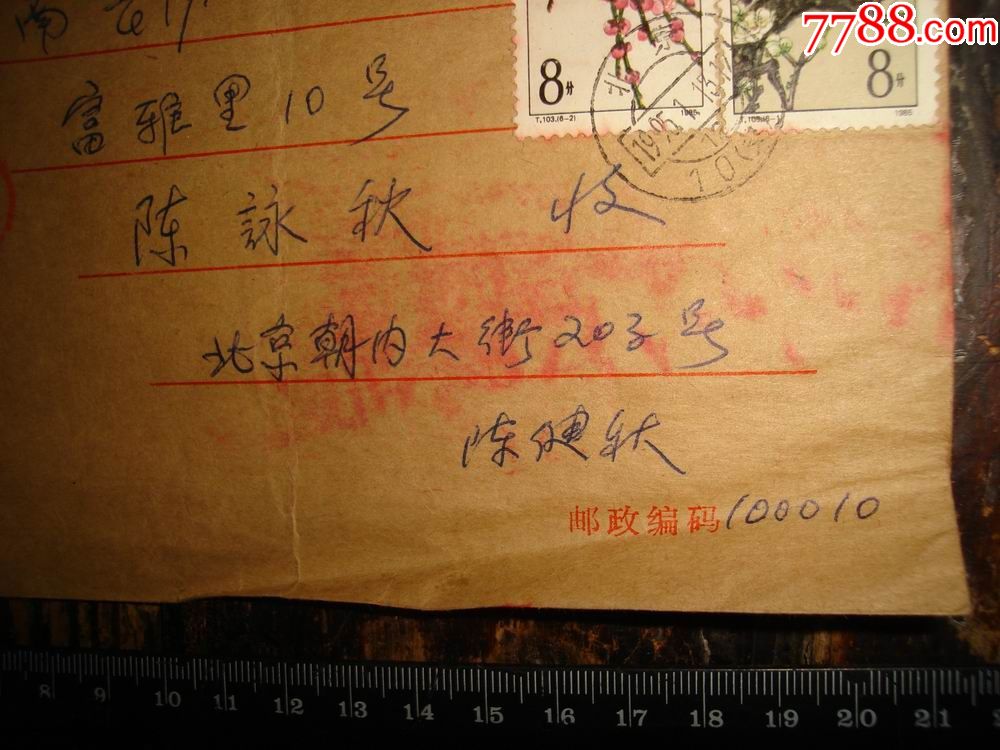 7788.com
南
富雅里10号
8分
T.103.(6-2)
1985
8分
1985
北京
1995.1.15.17
陈詠秋 收
北京朝内大街203号
陈健秋
邮政编码100010
8 9 10 11 12 13 14 15 16 17 18 19 20 21